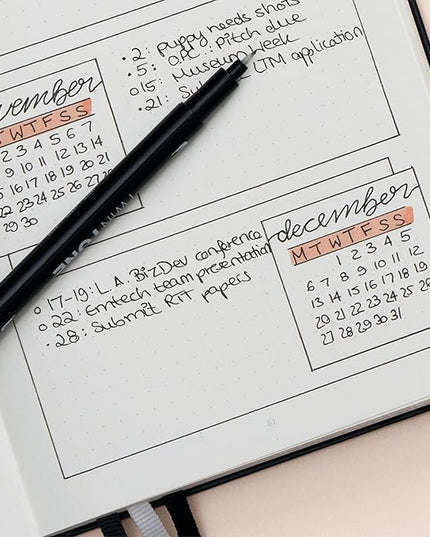 · 2: puppy needs shots
· 5: OPC: Pitch due
o 15: Museum Week
· 21: UTM application
vember
T W T F S S
2 3 4 5 6 7
9 10 11 12 13 14
15 16 17 18 19 20 21
22 23 24 25 26 27 28
29 30
TWIN TONE
december
M T W T F S S
1 2 3 4 5
6 7 8 9 10 11 12
13 14 15 16 17 18 19
20 21 22 23 24 25 26
27 28 29 30 31
o 17-19: L.A. BizDev conference
o 22: Emtech team presentation
· 28: Submit RTT papers
61